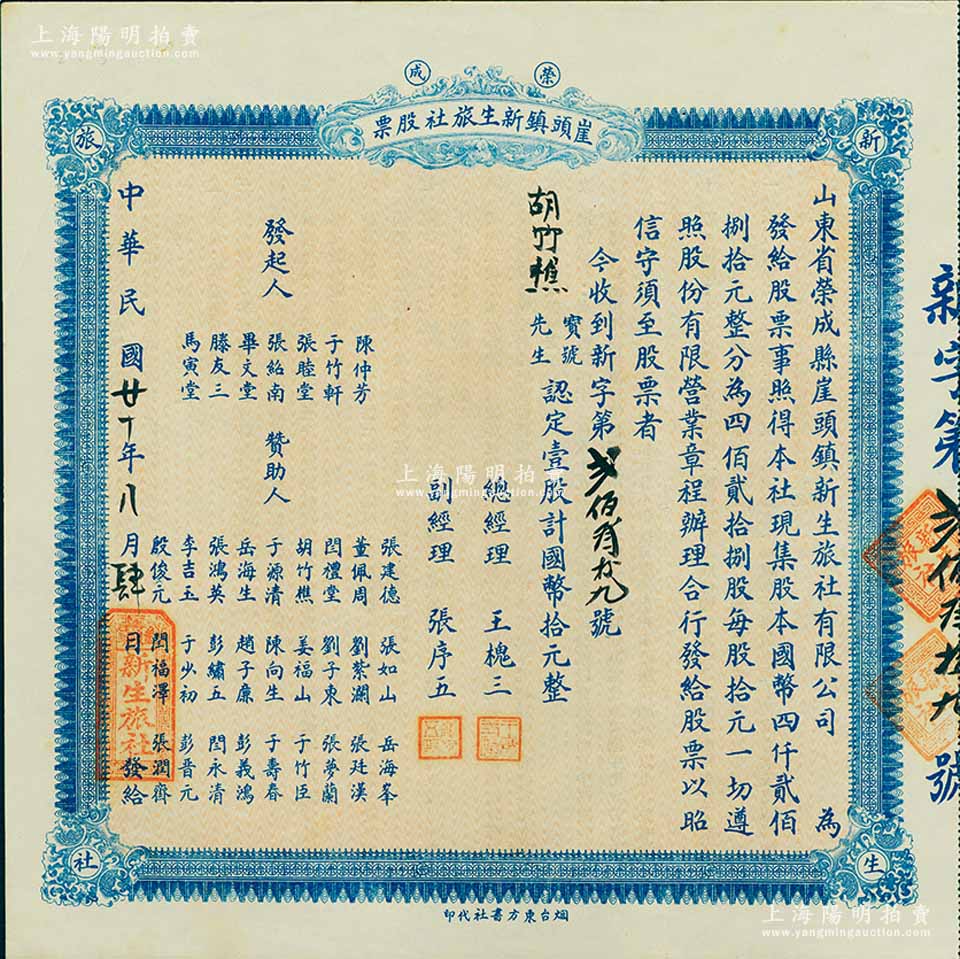 上海陽明拍賣
www.yangmingauction.com
榮成
崖頭鎮新生旅社股票
新
旅
山東省榮成縣崖頭鎮新生旅社有限公司 為
發給股票事照得本社現集股本國幣四仟貳佰
捌拾元整分為四佰貳拾捌股每股拾元一切遵
照股份有限營業章程辦理合行發給股票以昭
信守須至股票者
今收到新字第 號
胡竹樵 寶號 先生 認定壹股計國幣拾元整
總經理 王槐三
副經理 張序五
發起人
陳仲芳
于竹軒
張睦堂
張紹南
畢文堂
滕友三
馬寅堂
贊助人
張建德 張如山 岳海峯
董佩周 劉紫瀾 張廷漢
閆禮堂 劉子東 張夢蘭
胡竹樵 姜福山 于竹臣
于源清 陳向生 于壽春
岳海生 趙子廉 彭義鴻
張鴻英 彭繡五 閆永清
李吉玉 于少初 彭晉元
殷俊元 閆福澤 張潤齊
中華民國廿十年八月肆日發給
新生旅社
新字第 號
生
社
烟台東方書社代印
上海陽明拍賣
www.yangmingauction.com
上海陽明拍賣
www.yangmingauction.com